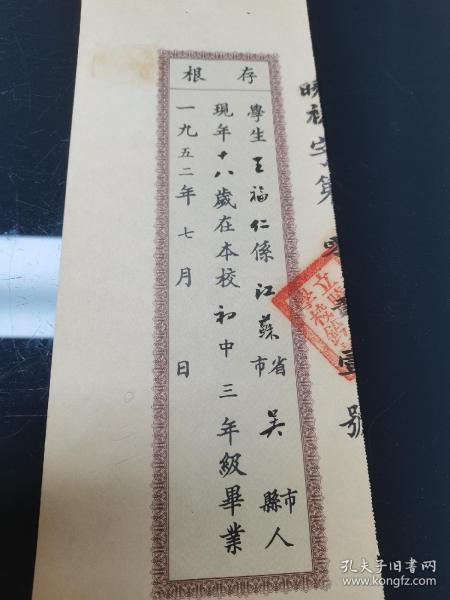 存根
學生王福仁係江蘇省市吳縣市人
現年十八歲在本校初中三年級畢業
一九五二年七月 日
字第零
壹號
立
學校
孔夫子旧书网
www.kongfz.com